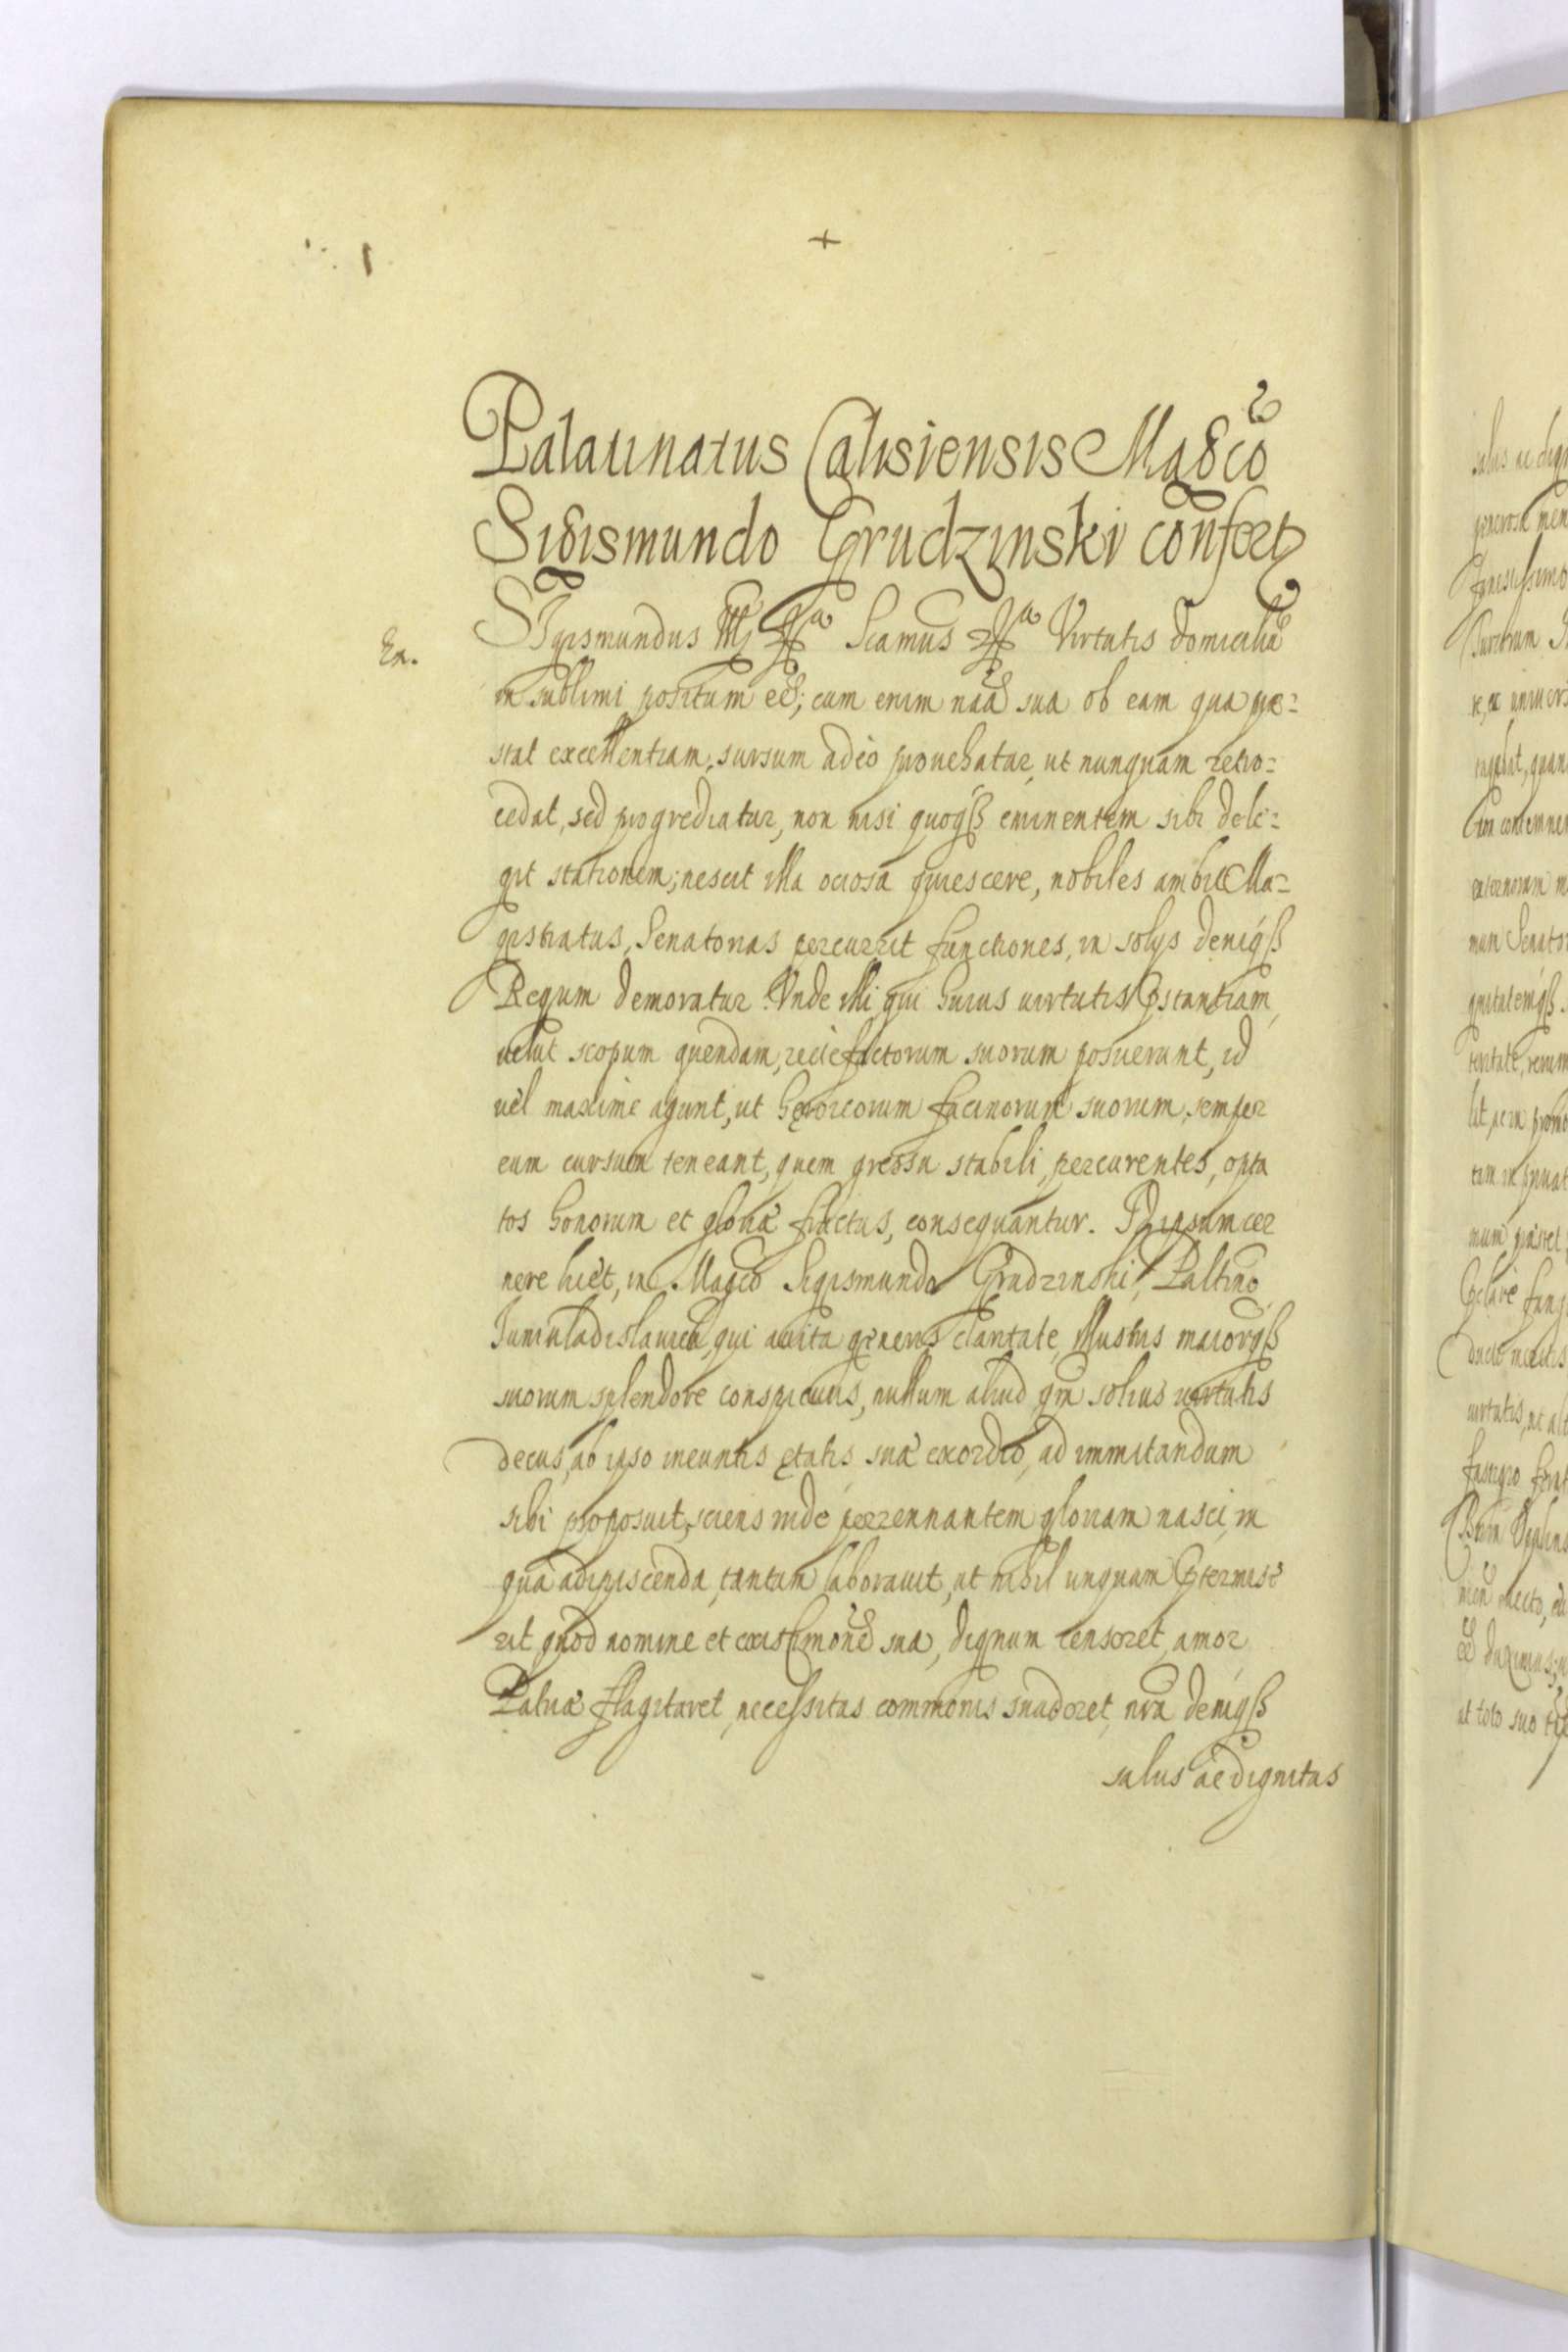 1
+
Palatinatus Calisiensis Magco
Sigismundo Grudzinski confert
Ex.
Sigismundus III &a Scamus &a Virtutis domiciliū
in sublimi positum eē; cum enim nāā sua ob eam qua præ=
stat excellentiam, sursum adeo prouehatur, ut nunquam retro=
cedat, sed progrediatur, non nisi quoqß eminentem sibi deli=
git stationem; nescit illa ociosa quiescere, nobiles ambit Ma=
gistratus, Senatorias percurrit functiones, in solijs deniqß
Regum demoratur. Vnde illi qui huius uirtutis pstantiam,
uelut scopum quendam, recte factorum suorum posuerunt, id
uel maxime agunt, ut heroicorum facinorum suorum, semper
eum cursum teneant, quem gressu stabili, percurentes, opta
tos honorum et gloriæ fructus, consequantur. Id ipsum cer
nere licet, in Magco Sigismundo Grudzinski, Paltino
Iuniuladislauien, qui auita generis claritate, Illustris maiorqß
suorum splendore conspicuus, nullum aliud qm solius uirtutis
decus, ab ipso ineuntis ętatis suæ exordio, ad immitandum
sibi proposuit, sciens inde perennantem gloriam nasci, in
qua adipiscenda, tantum laborauit, ut nihil unquam ptermise
rit quod nomine et existimone sua, dignum censeret, amor
Patriæ flagitaret, necessitas commonis suaderet, nra deniqß
salus ac dignitas